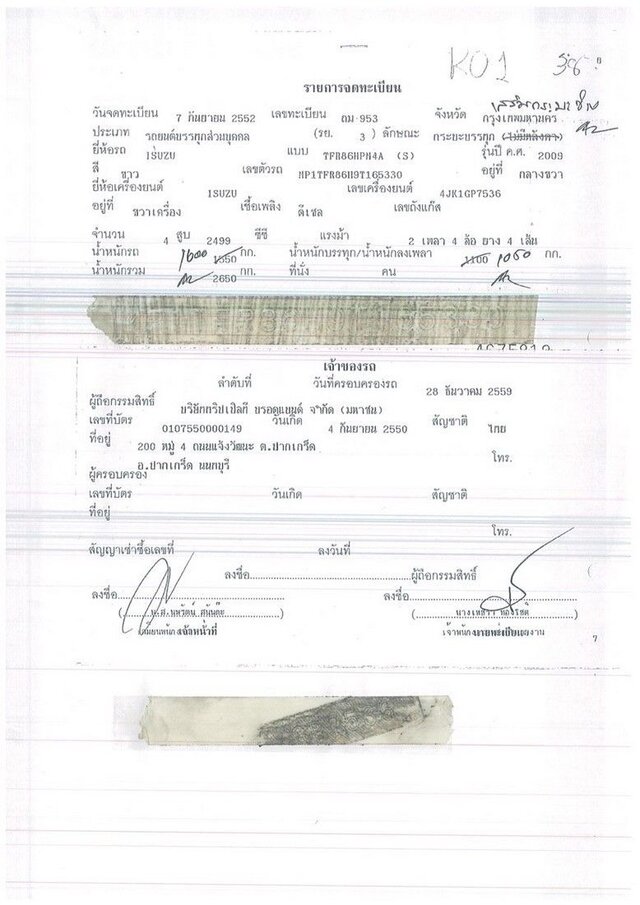 K01 38
รายการจดทะเบียน
วันจดทะเบียน 7 กันยายน 2552 เลขทะเบียน ถม-953 จังหวัด กรุงเทพมหานคร
ประเภท รถยนต์บรรทุกส่วนบุคคล (รย. 3) ลักษณะ กระบะบรรทุก (ไม่มีหลังคา)
ยี่ห้อรถ ISUZU แบบ TFR86HPM4A (S) รุ่นปี ค.ศ. 2009
สี ขาว เลขตัวรถ MP1TFR86H9T165330 อยู่ที่ กลางขวา
ยี่ห้อเครื่องยนต์ ISUZU เลขเครื่องยนต์ 4JK1GP7536
อยู่ที่ ขวาเครื่อง เชื้อเพลิง ดีเซล เลขถังแก๊ส
จำนวน 4 สูบ 2499 ซีซี แรงม้า 2 เพลา 4 ล้อ ยาง 4 เส้น
น้ำหนักรถ 1600 1550 กก. น้ำหนักบรรทุก/น้ำหนักลงเพลา 1100 1050 กก.
น้ำหนักรวม 2650 กก. ที่นั่ง คน
เจ้าของรถ
ลำดับที่ วันที่ครอบครองรถ 28 ธันวาคม 2559
ผู้ถือกรรมสิทธิ์ บริษัททริปเปิลที บรอดแบนด์ จำกัด (มหาชน)
เลขที่บัตร 0107550000149 วันเกิด 4 กันยายน 2550 สัญชาติ ไทย
ที่อยู่ 200 หมู่ 4 ถนนแจ้งวัฒนะ ต.ปากเกร็ด
อ.ปากเกร็ด นนทบุรี โทร.
ผู้ครอบครอง
เลขที่บัตร วันเกิด สัญชาติ
ที่อยู่
โทร.
สัญญาเช่าซื้อเลขที่ ลงวันที่
ลงชื่อ ผู้ถือกรรมสิทธิ์
ลงชื่อ ลงชื่อ
เจ้าหน้าที่ นายทะเบียน